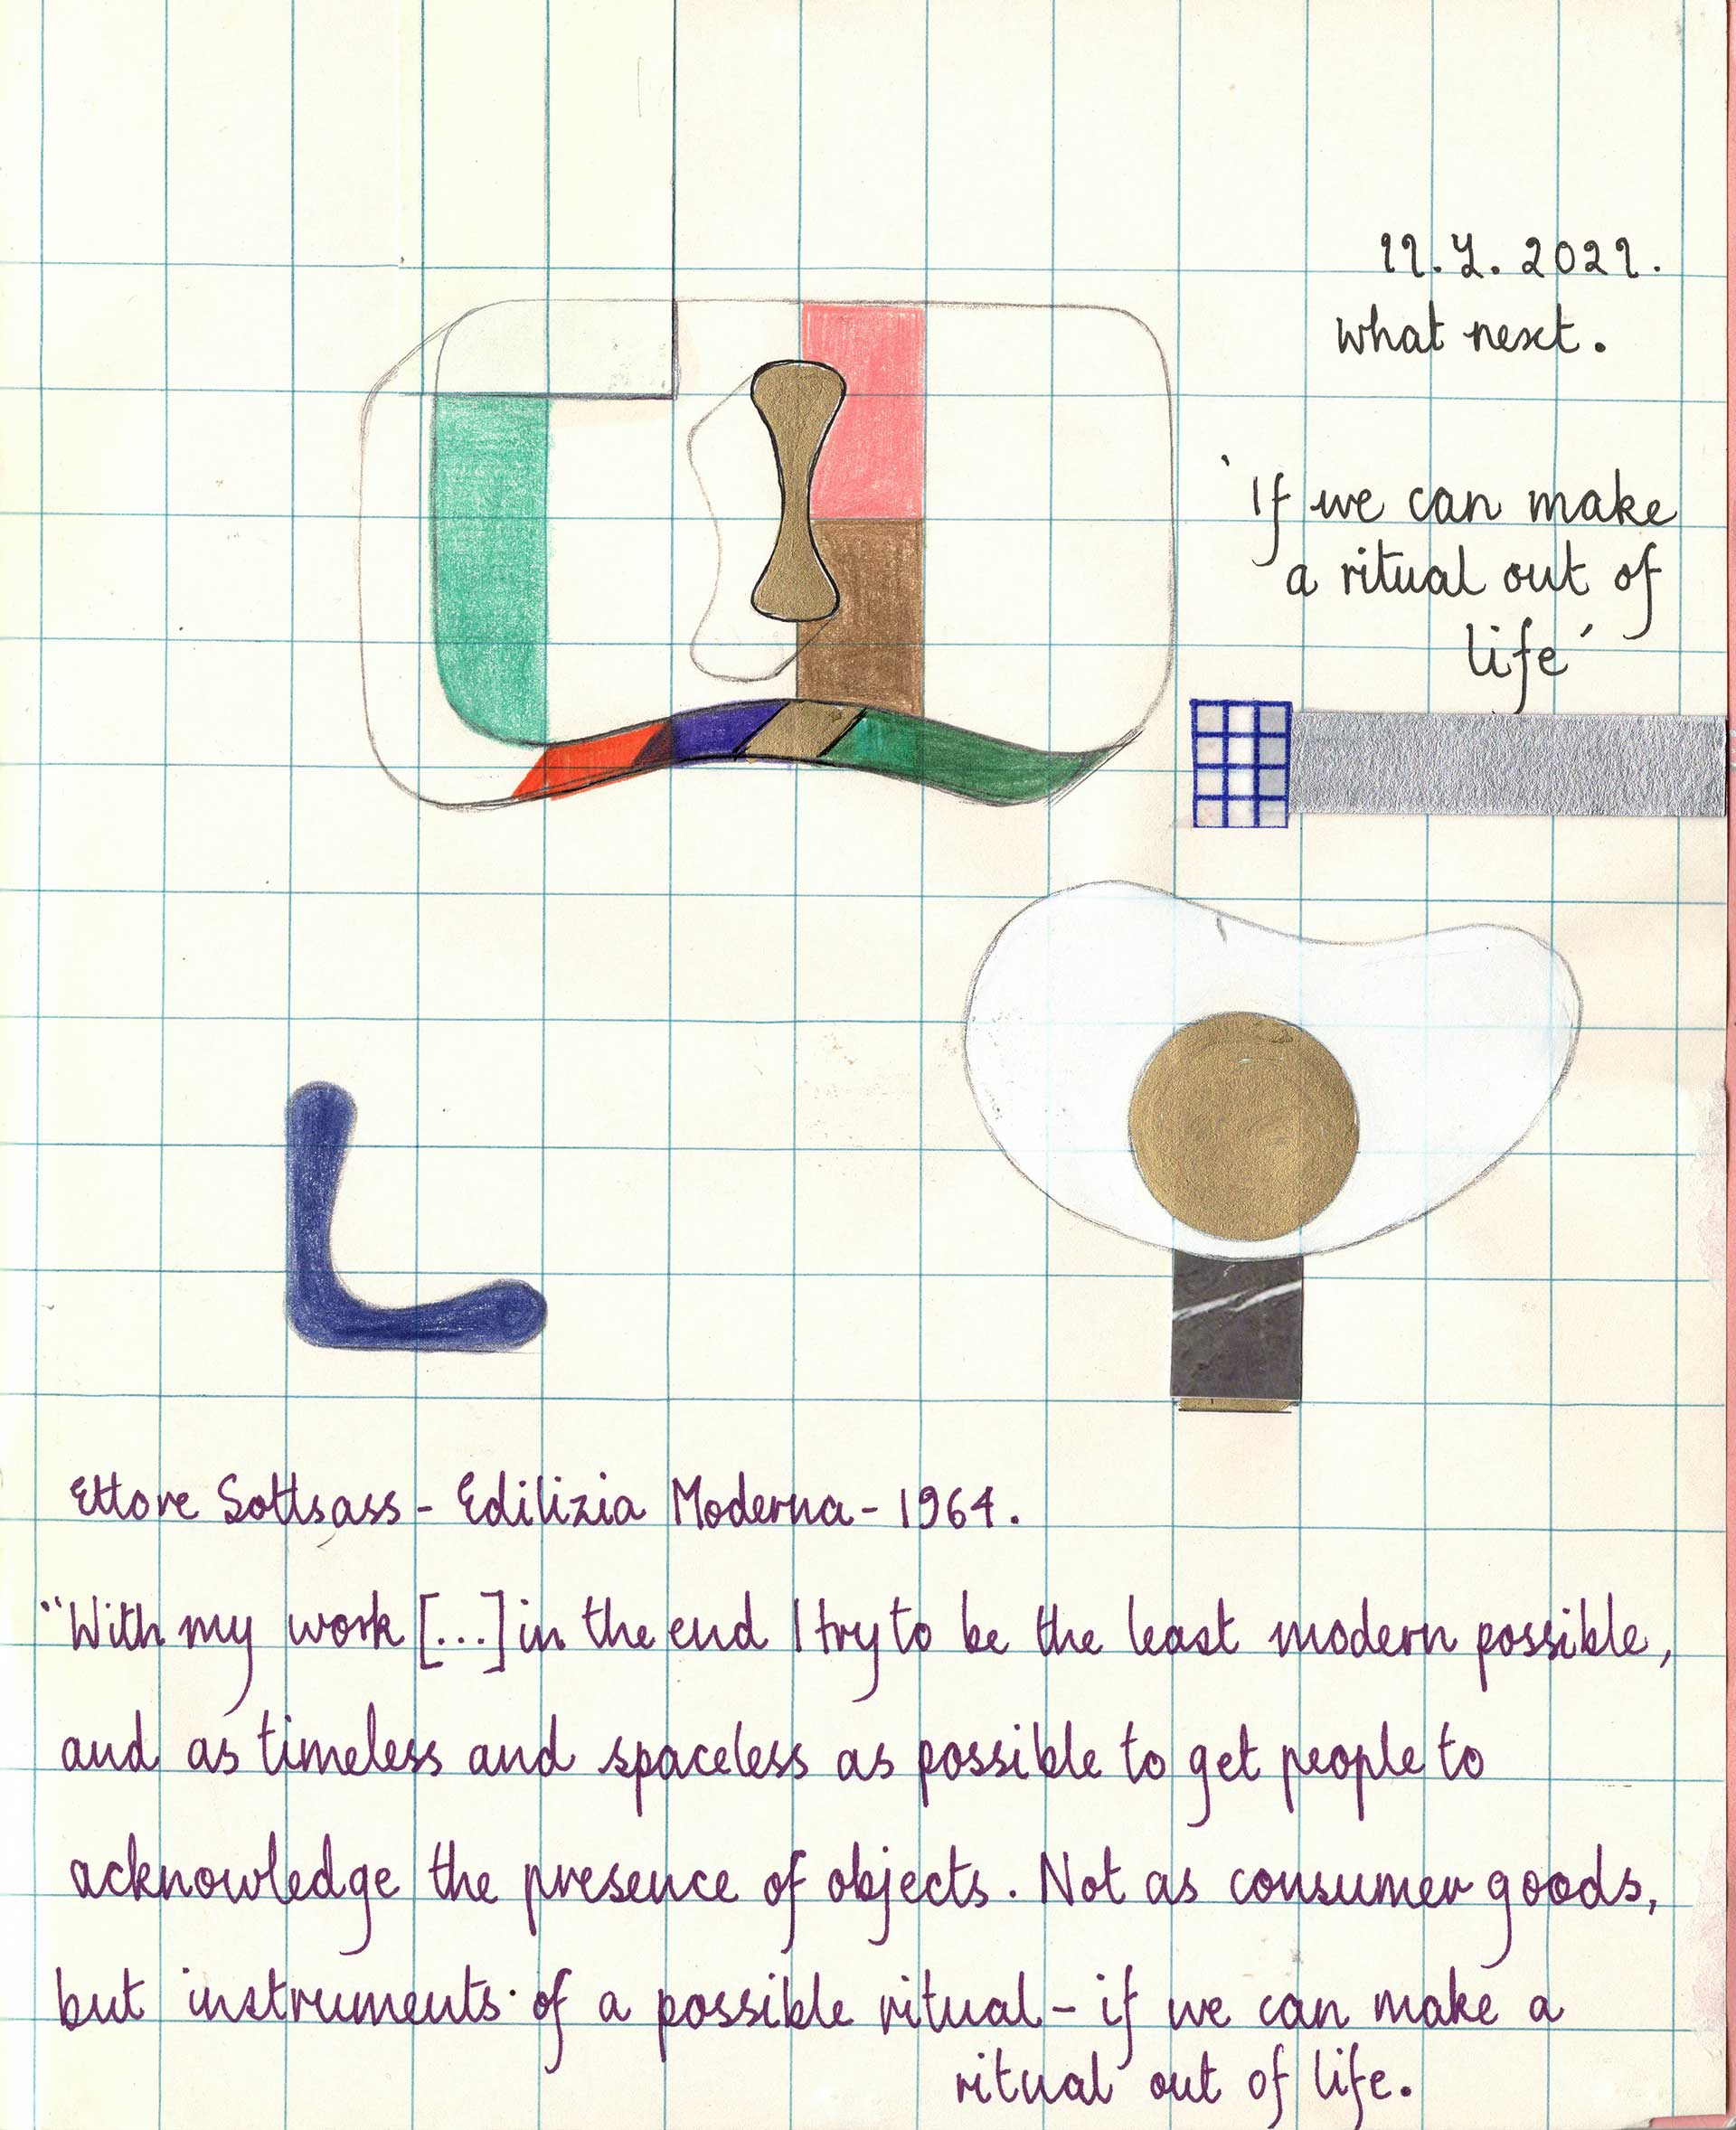 11.7.2021.
what next.
'If we can make
a ritual out of
life'
Ettore Sottsass - Edilizia Moderna - 1964.
"With my work [...] in the end I try to be the least modern possible,
and as timeless and spaceless as possible to get people to
acknowledge the presence of objects. Not as consumer goods,
but instruments of a possible ritual - if we can make a
ritual out of life.